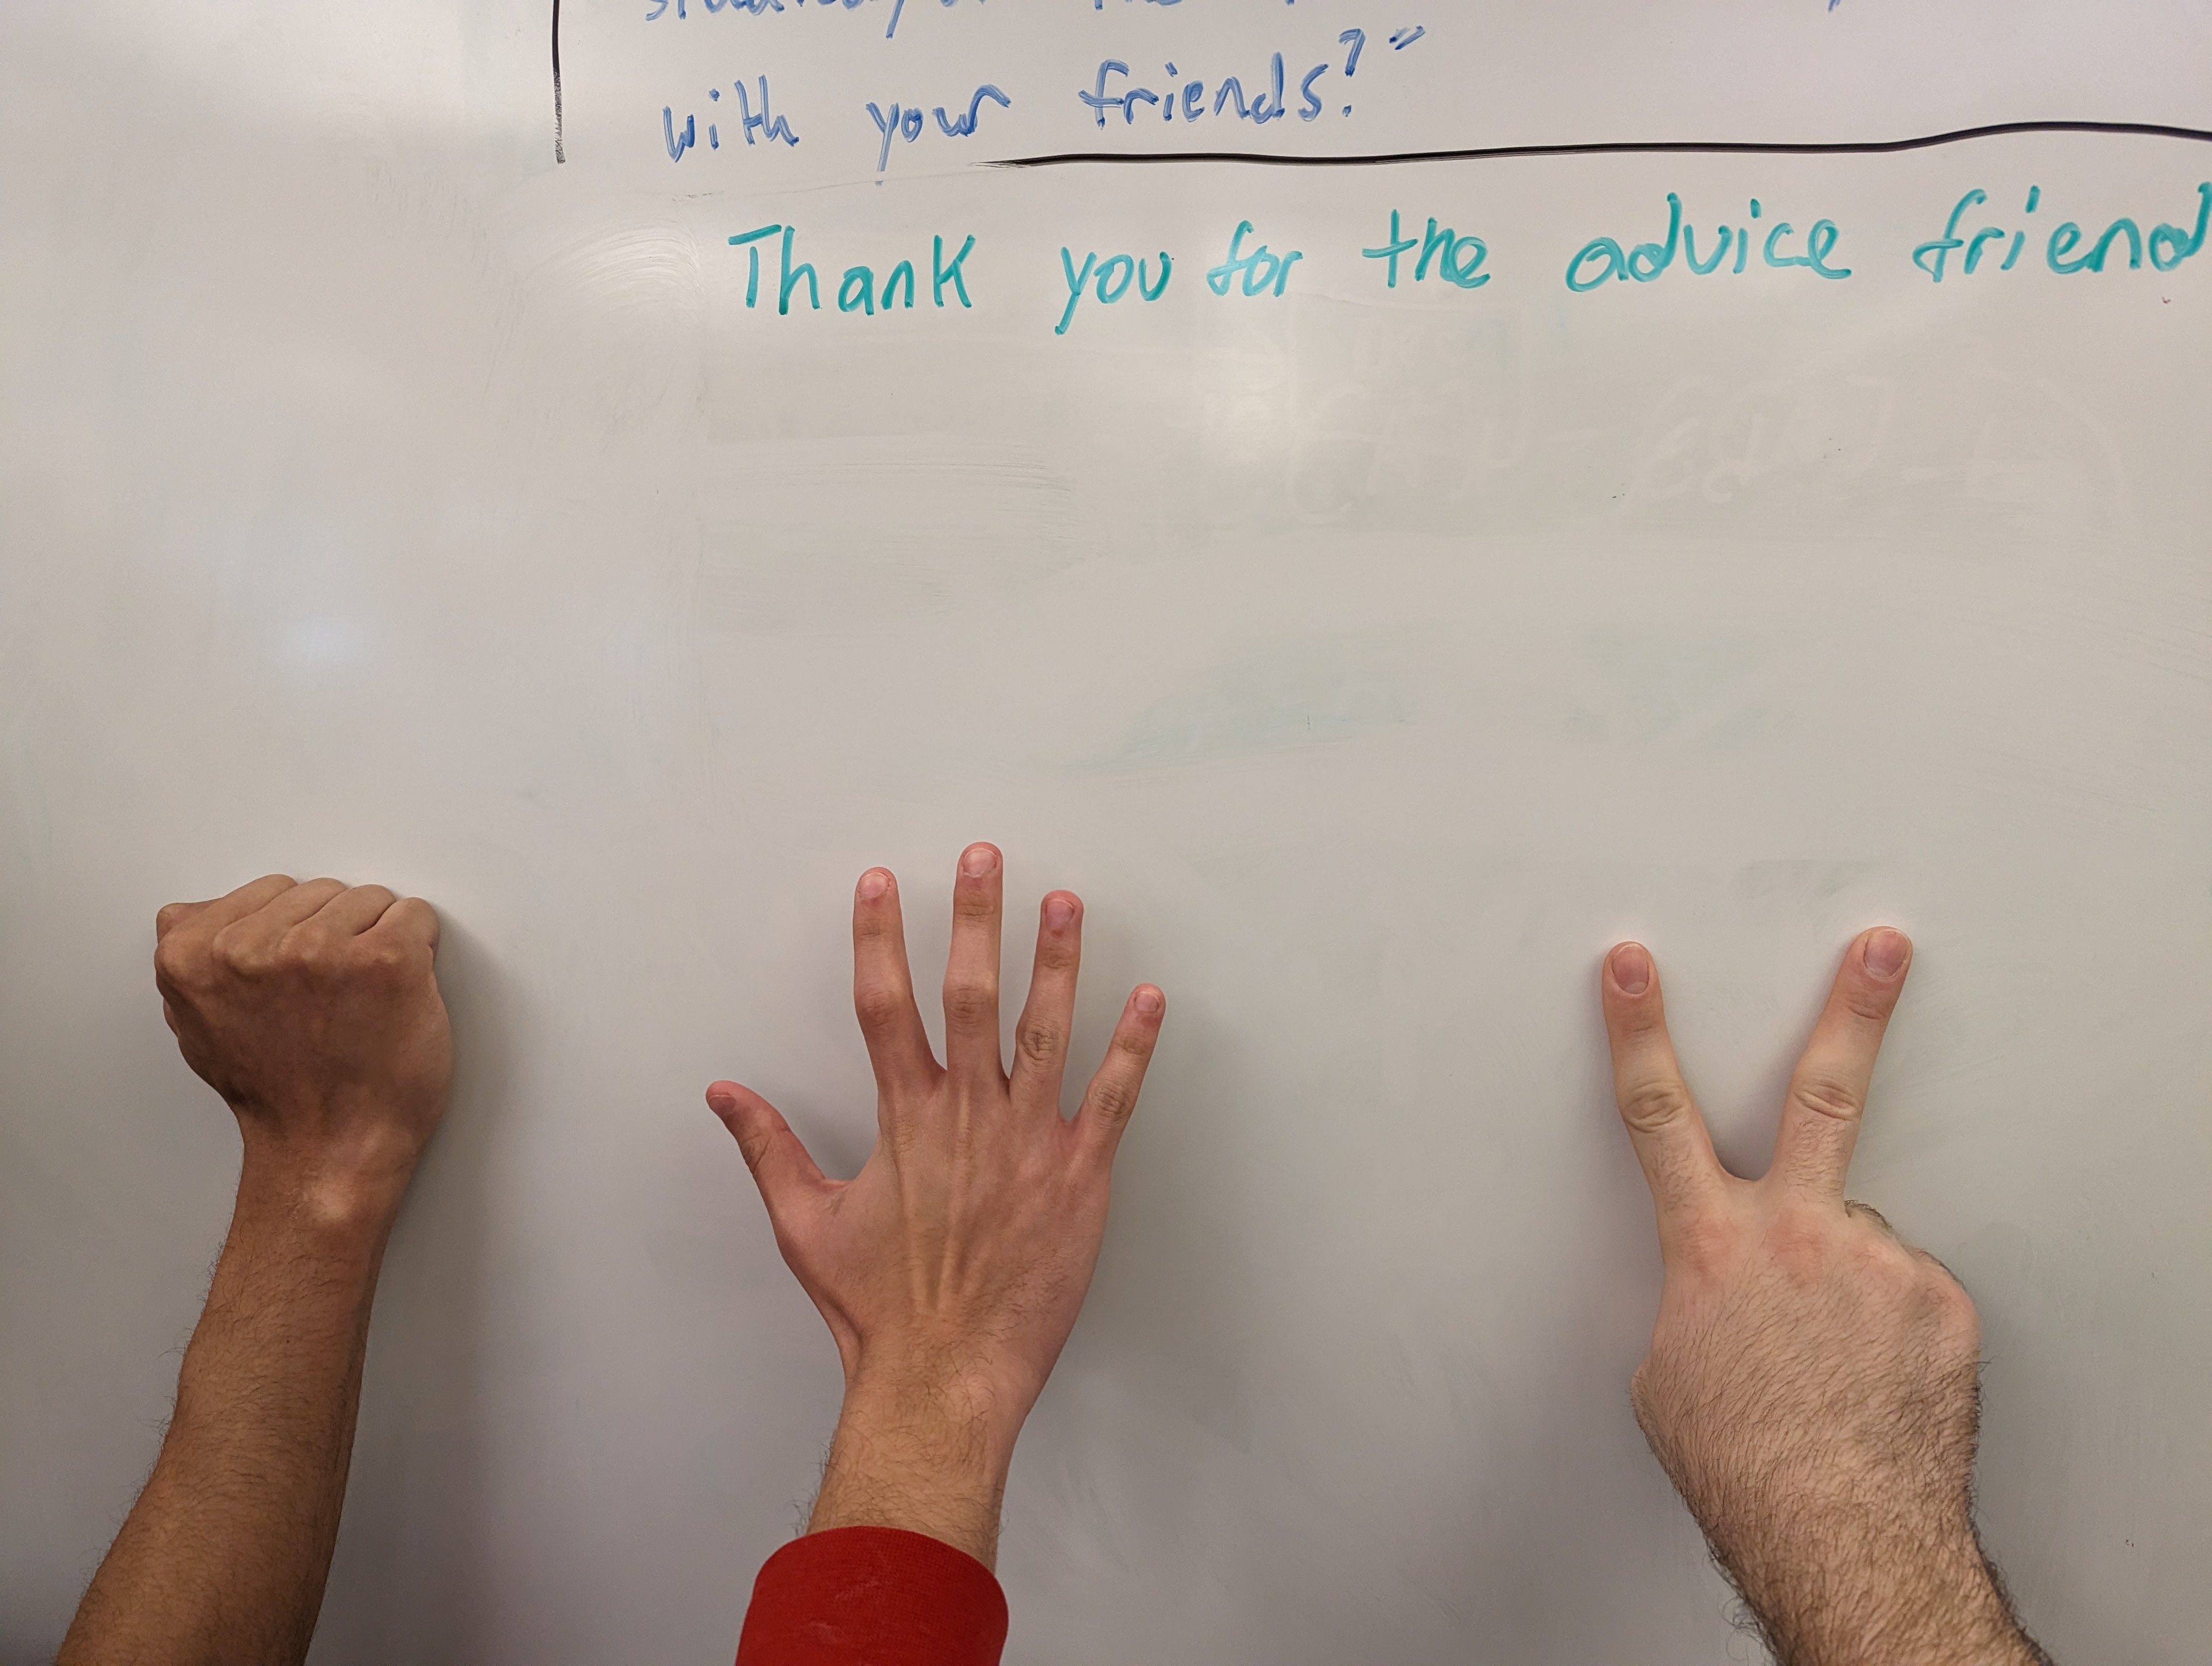 with your friends?"
Thank you for the advice friend